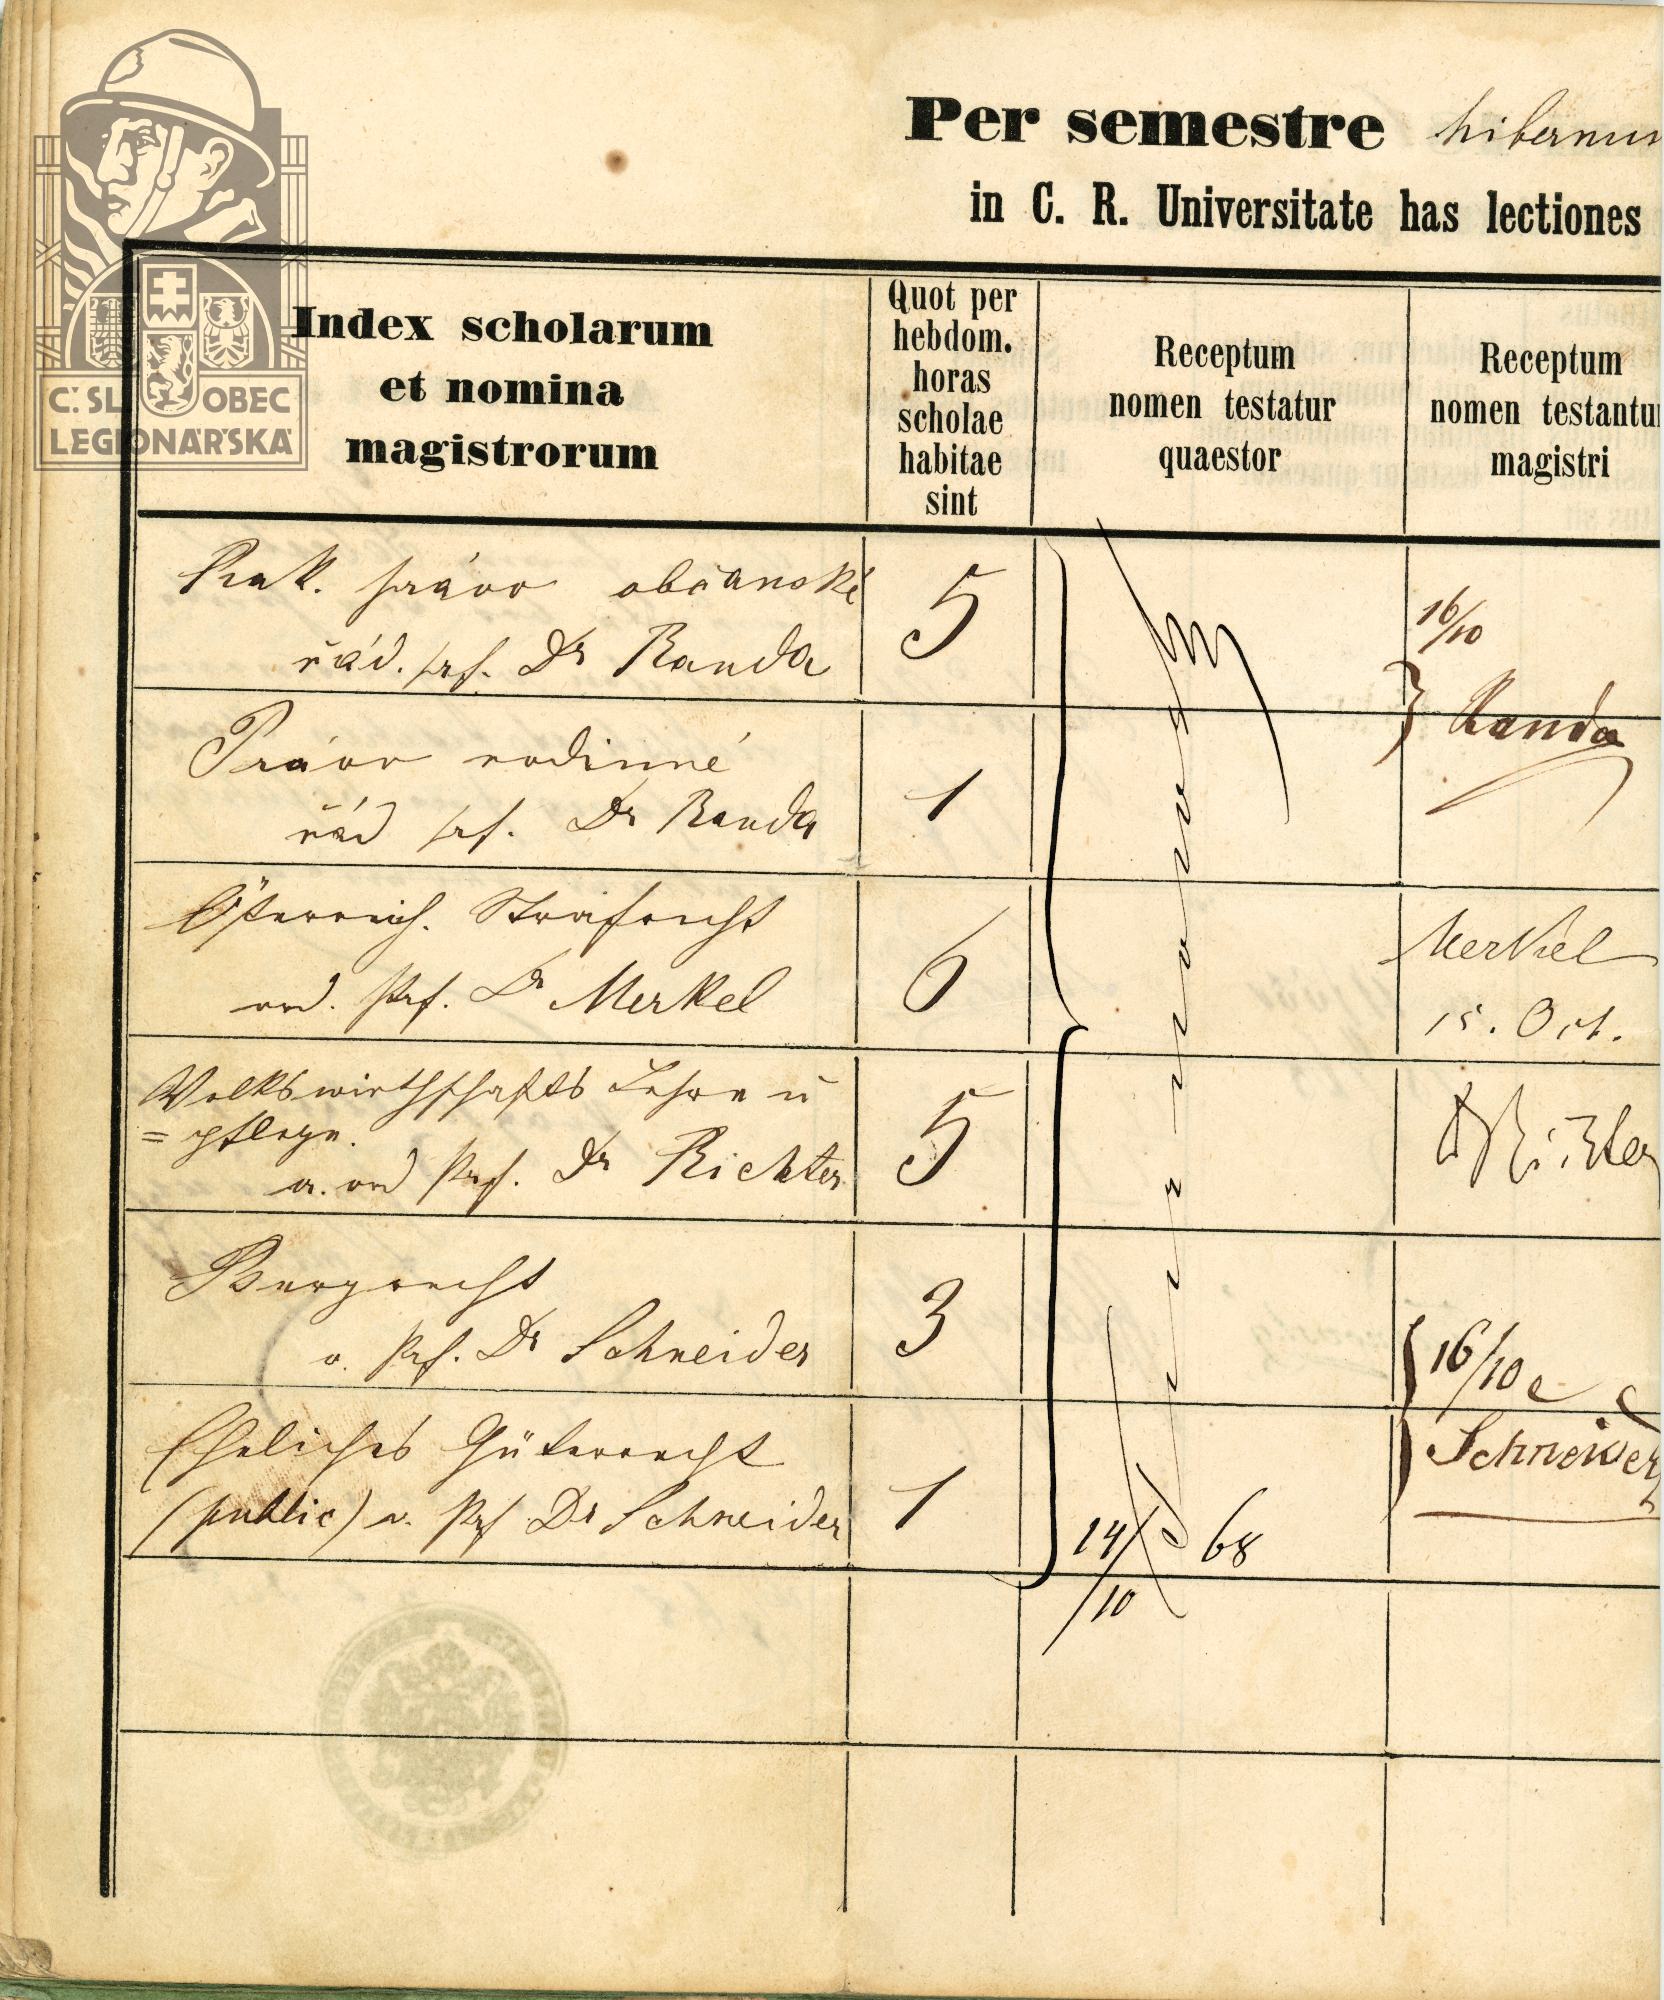 Per semestre hibernum
in C. R. Universitate has lectiones
Index scholarum
et nomina
magistrorum
Quot per
hebdom.
horas
scholae
habitae
sint
Receptum
nomen testatur
quaestor
Receptum
nomen testantur
magistri
Č. SL. OBEC
LEGIONÁŘSKÁ
Rak. právo občanské
řád. prf. Dr Randa
5
16/10
Randa
Právo rodinné
řád prf. Dr Randa
1
Österreich. Strafrecht
ord. Prf. Dr Merkel
6
Merkel
15. Oct.
Volkswirthschafts Lehre u
= pflege.
a. ord Prf. Dr Richter
5
Richter
Bergrecht
o. Prf. Dr Schneider
3
16/10
Schneider
Eheliches Güterrecht
(public) o. Prf Dr Schneider
1
14/10 68